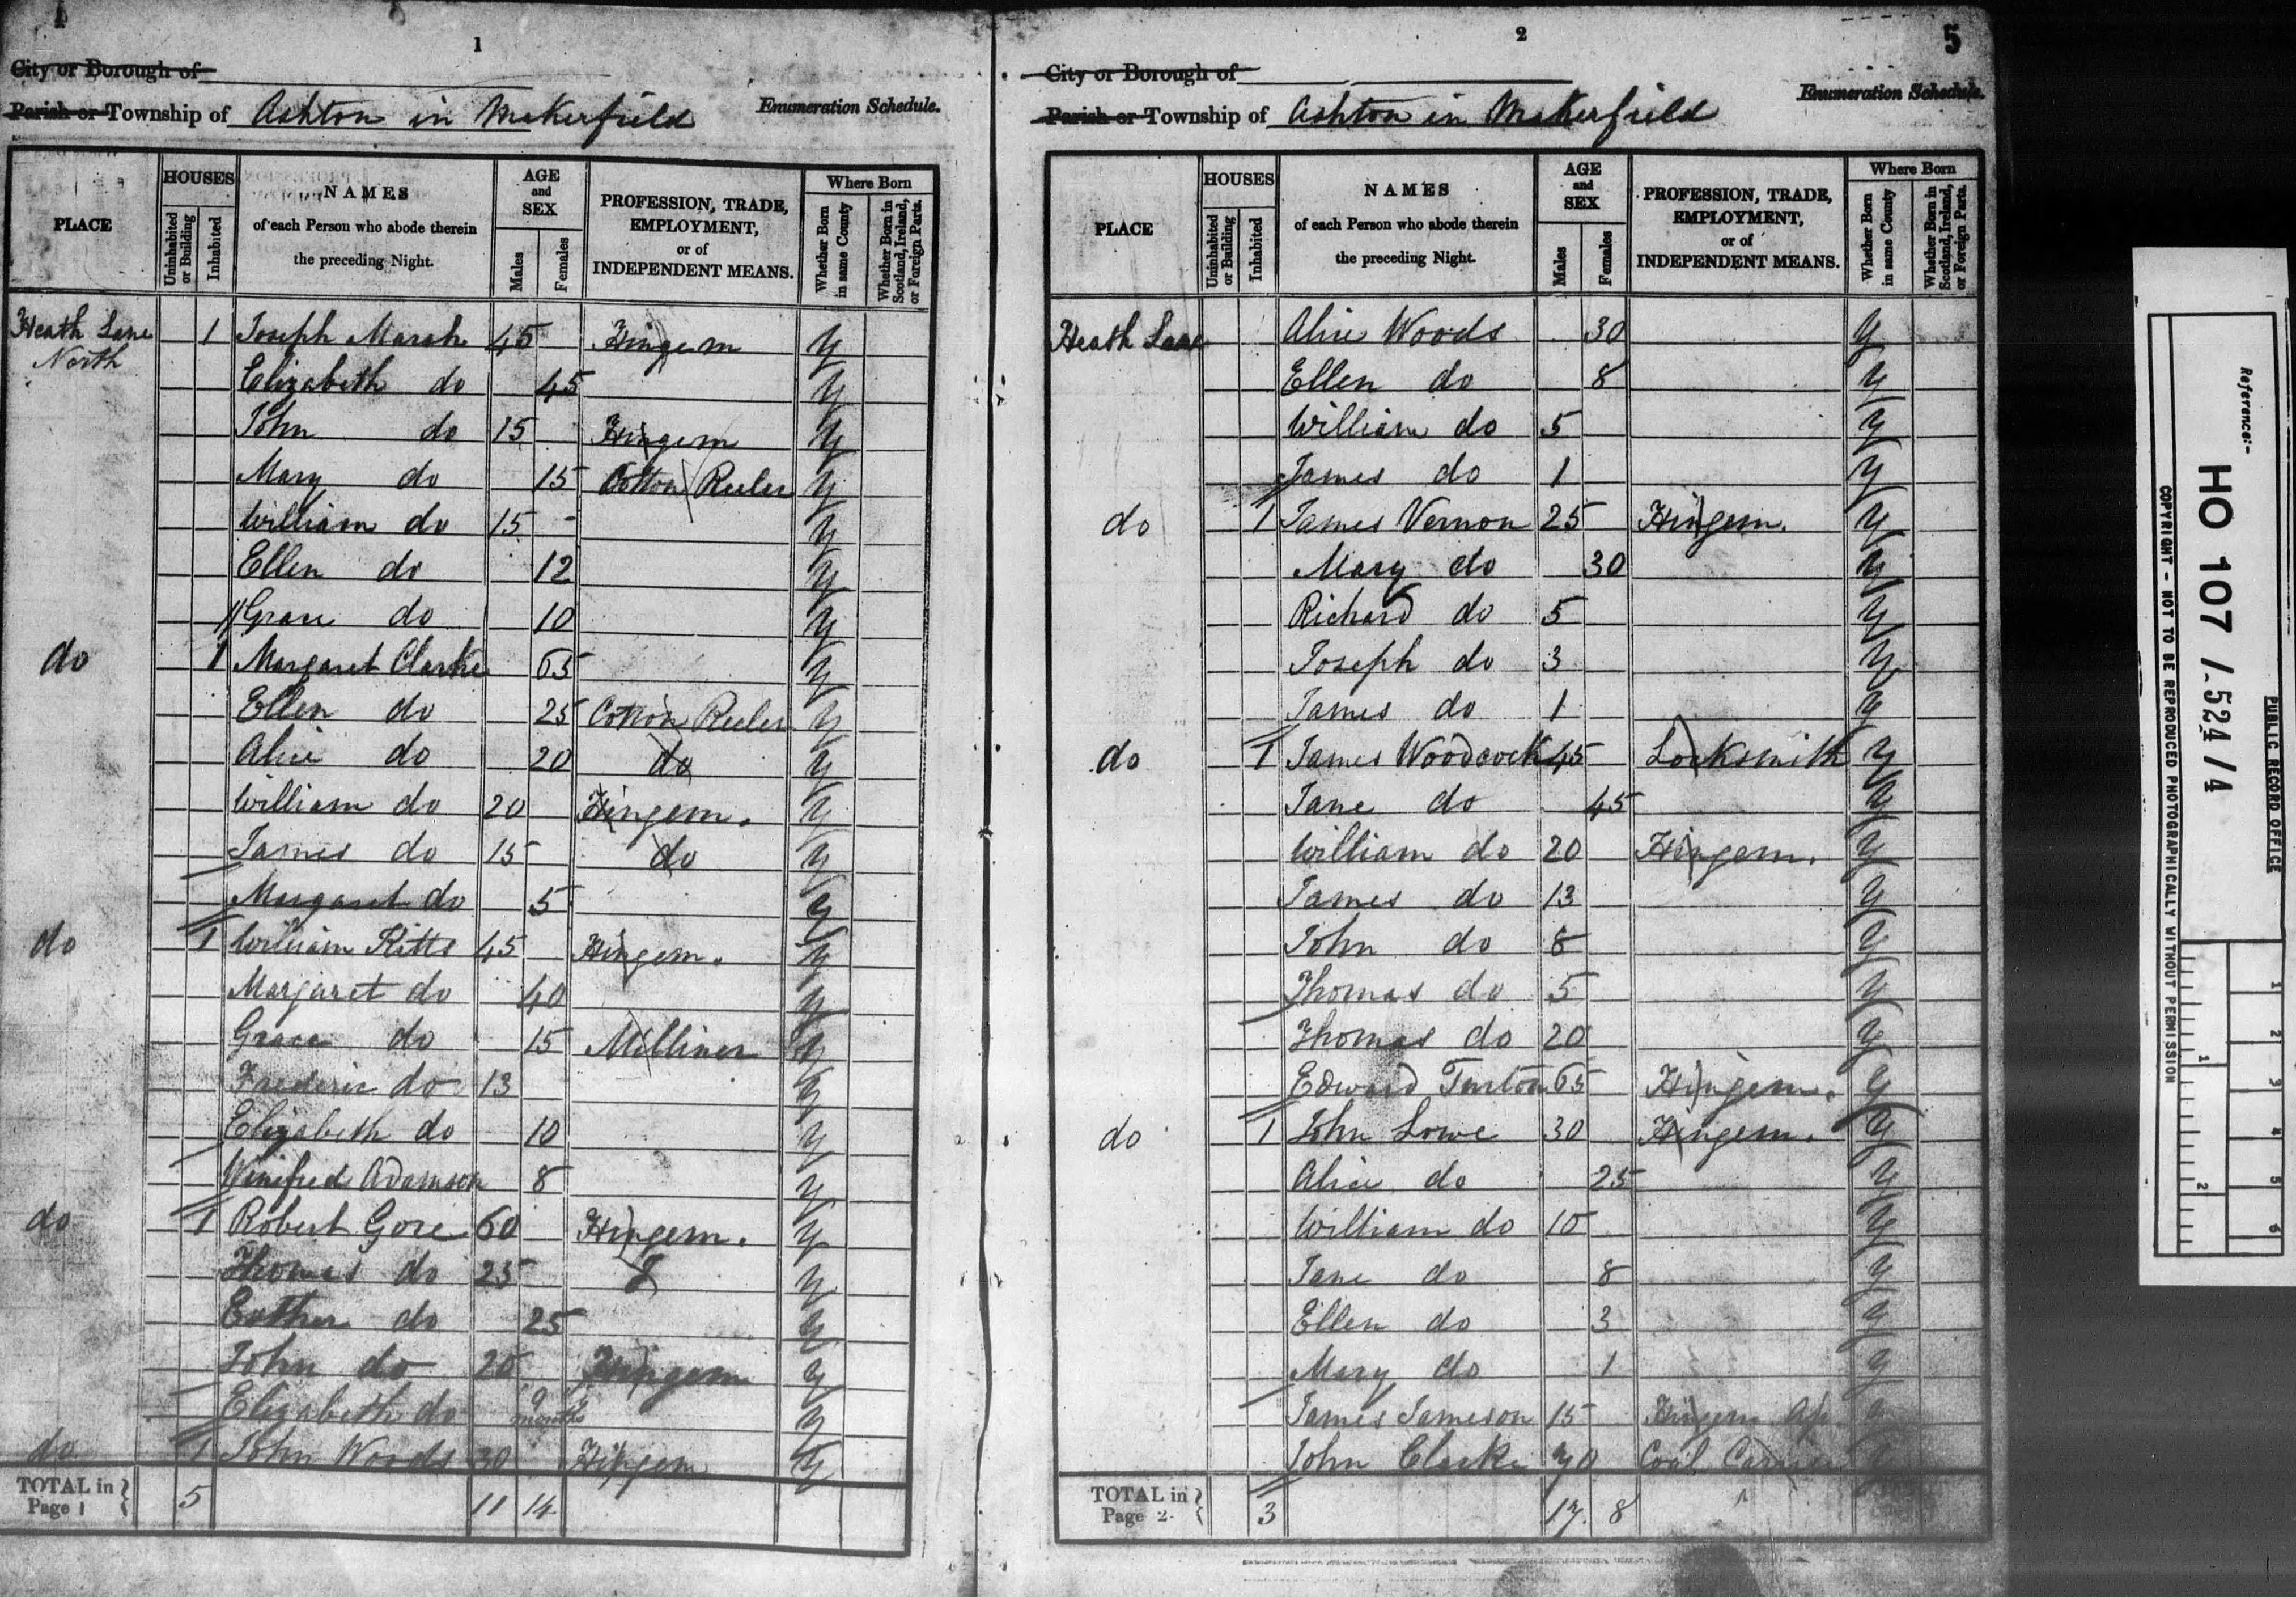 1
City or Borough of
Parish or Township of Ashton in Makerfield Enumeration Schedule.
PLACE HOUSES NAMES of each Person who abode therein the preceding Night. AGE and SEX PROFESSION, TRADE, EMPLOYMENT, or of INDEPENDENT MEANS. Where Born
Uninhabited or Building Inhabited Males Females Whether Born in same County Whether Born in Scotland, Ireland, or Foreign Parts.
Heath Lane North 1 Joseph Marsh 45 Hingem y
Elizabeth do 45 y
John do 15 Hingem y
Mary do 15 Cotton Reeler y
William do 15 y
Ellen do 12 y
Grace do 10 y
do 1 Margaret Clarke 65 y
Ellen do 25 Cotton Reeler y
Alice do 20 do y
William do 20 Hingem. y
James do 15 do y
Margaret do 5 y
do 1 William Kitts 45 Hingem. y
Margaret do 40 y
Grace do 15 Milliner y
Frederic do 13 y
Elizabeth do 10 y
Winifred Adamson 8 y
do 1 Robert Gore 60 Hingem. y
Thomas do 25 y
Esther do 25 y
John do 20 Hingem y
Elizabeth do 9 months y
do 1 John Woods 30 Hingem y
TOTAL in Page 1 5 11 14
2
5
City or Borough of
Parish or Township of Ashton in Makerfield Enumeration Schedule.
PLACE HOUSES NAMES of each Person who abode therein the preceding Night. AGE and SEX PROFESSION, TRADE, EMPLOYMENT, or of INDEPENDENT MEANS. Where Born
Uninhabited or Building Inhabited Males Females Whether Born in same County Whether Born in Scotland, Ireland, or Foreign Parts.
Heath Lane Alice Woods 30 y
Ellen do 8 y
William do 5 y
James do 1 y
do 1 James Vernon 25 Hingem. y
Mary do 30 y
Richard do 5 y
Joseph do 3 y
James do 1 y
do 1 James Woodcock 45 Locksmith y
Jane do 45 y
William do 20 Hingem. y
James do 13 y
John do 8 y
Thomas do 5 y
Thomas do 20 y
Edward Turton 65 Hingem. y
do 1 John Lowe 30 Hingem. y
Alice do 25 y
William do 10 y
Jane do 8 y
Ellen do 3 y
Mary do 1 y
James Jameson 15 Hingem Ap. y
John Clarke 70 Coal Carrier y
TOTAL in Page 2 3 17 8
Reference:-
HO 107 / 524 / 4
PUBLIC RECORD OFFICE
COPYRIGHT - NOT TO BE REPRODUCED PHOTOGRAPHICALLY WITHOUT PERMISSION
1 2 3 4 5 6
1 2